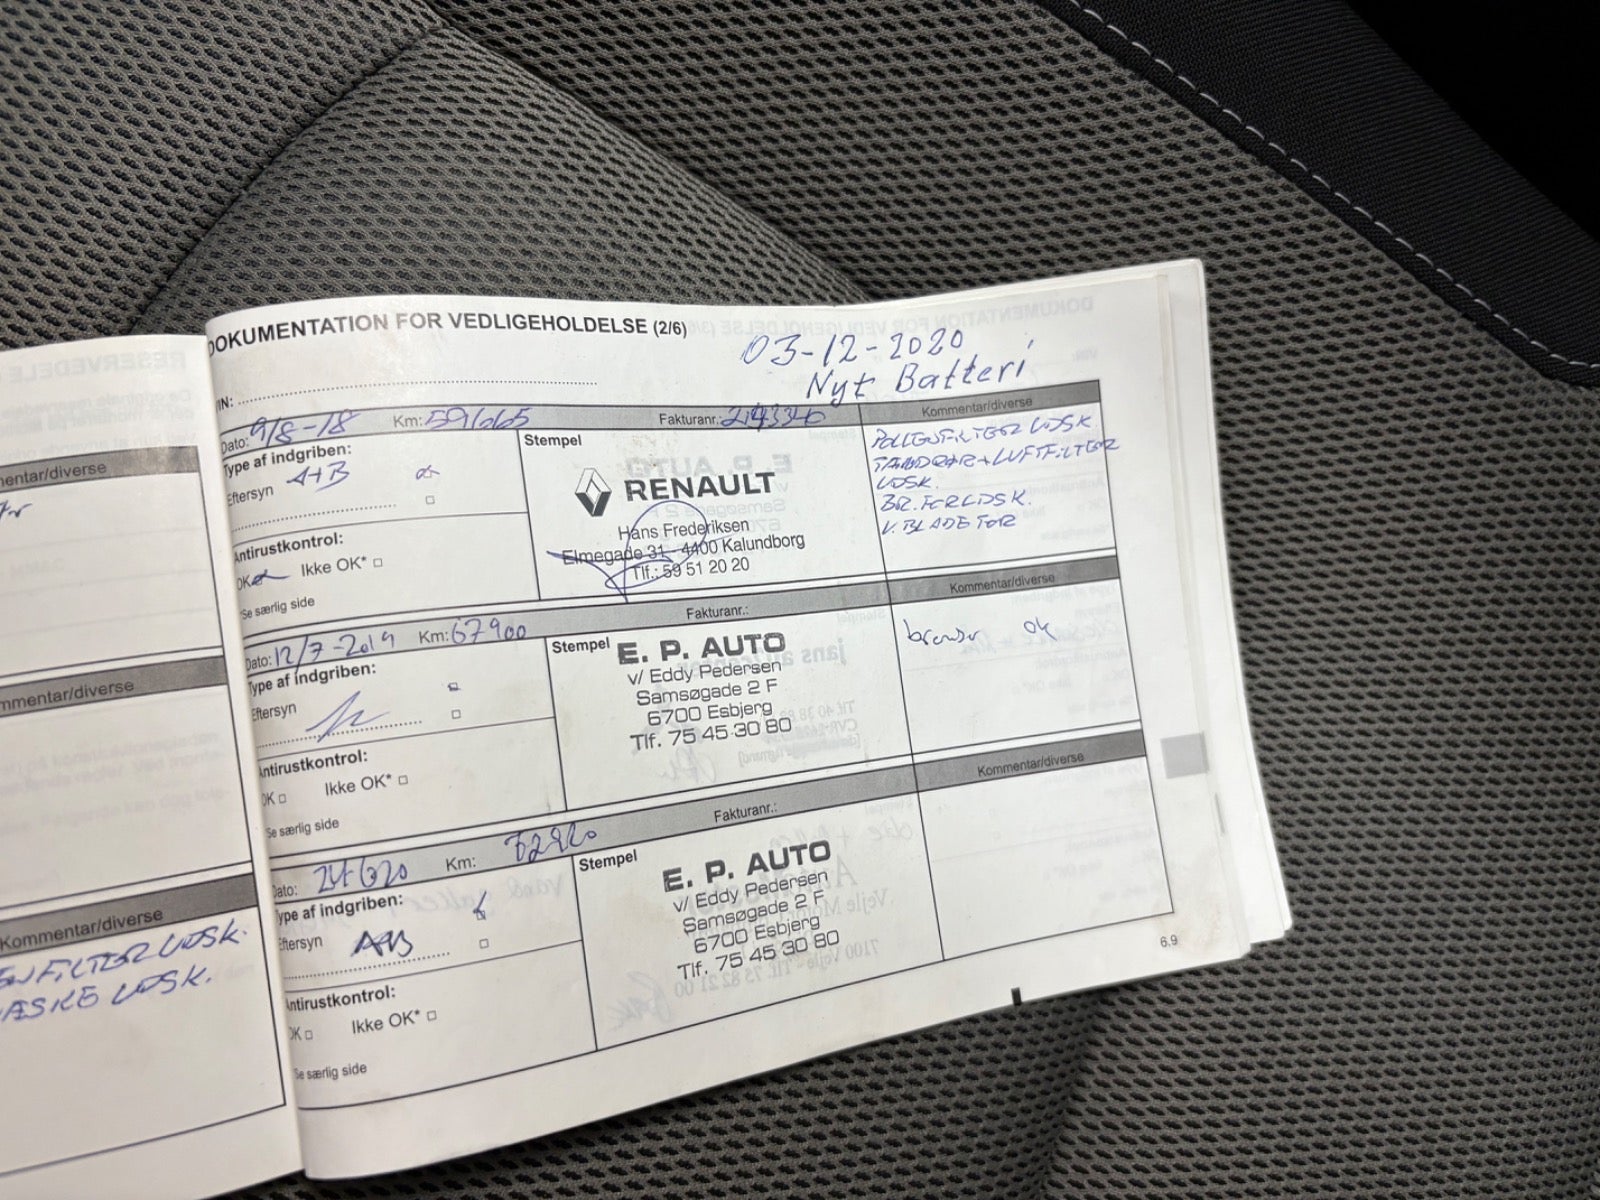 DOKUMENTATION FOR VEDLIGEHOLDELSE (2/6)
03-12-2020
Nyt Batteri
Dato: 9/8-18 Km: 59665 Fakturanr.:
Kommentar/diverse
Type af indgriben:
Eftersyn A+B
Antirustkontrol:
OK Ikke OK* □
Se særlig side
Stempel
RENAULT
Hans Frederiksen
Elmegade 31 - 4400 Kalundborg
Tlf.: 59 51 20 20
POLLENFILTER UDSK
TANDRØR+LUFTFILTER
UDSK.
V. BLADE FOR
Dato: 12/7-2019 Km: 67900 Fakturanr.:
Kommentar/diverse
Type af indgriben:
Eftersyn
Antirustkontrol:
OK □ Ikke OK* □
Se særlig side
Stempel
E. P. AUTO
v/ Eddy Pedersen
Samsøgade 2 F
6700 Esbjerg
Tlf. 75 45 30 80
bremser ok
Dato: Km: Fakturanr.:
Kommentar/diverse
Type af indgriben:
Eftersyn
Antirustkontrol:
OK □ Ikke OK* □
Se særlig side
Stempel
E. P. AUTO
v/ Eddy Pedersen
Samsøgade 2 F
6700 Esbjerg
Tlf. 75 45 30 80
6.9
mentar/diverse
mmentar/diverse
Kommentar/diverse
ENFILTER UDSK.
ÆSKE UDSK.